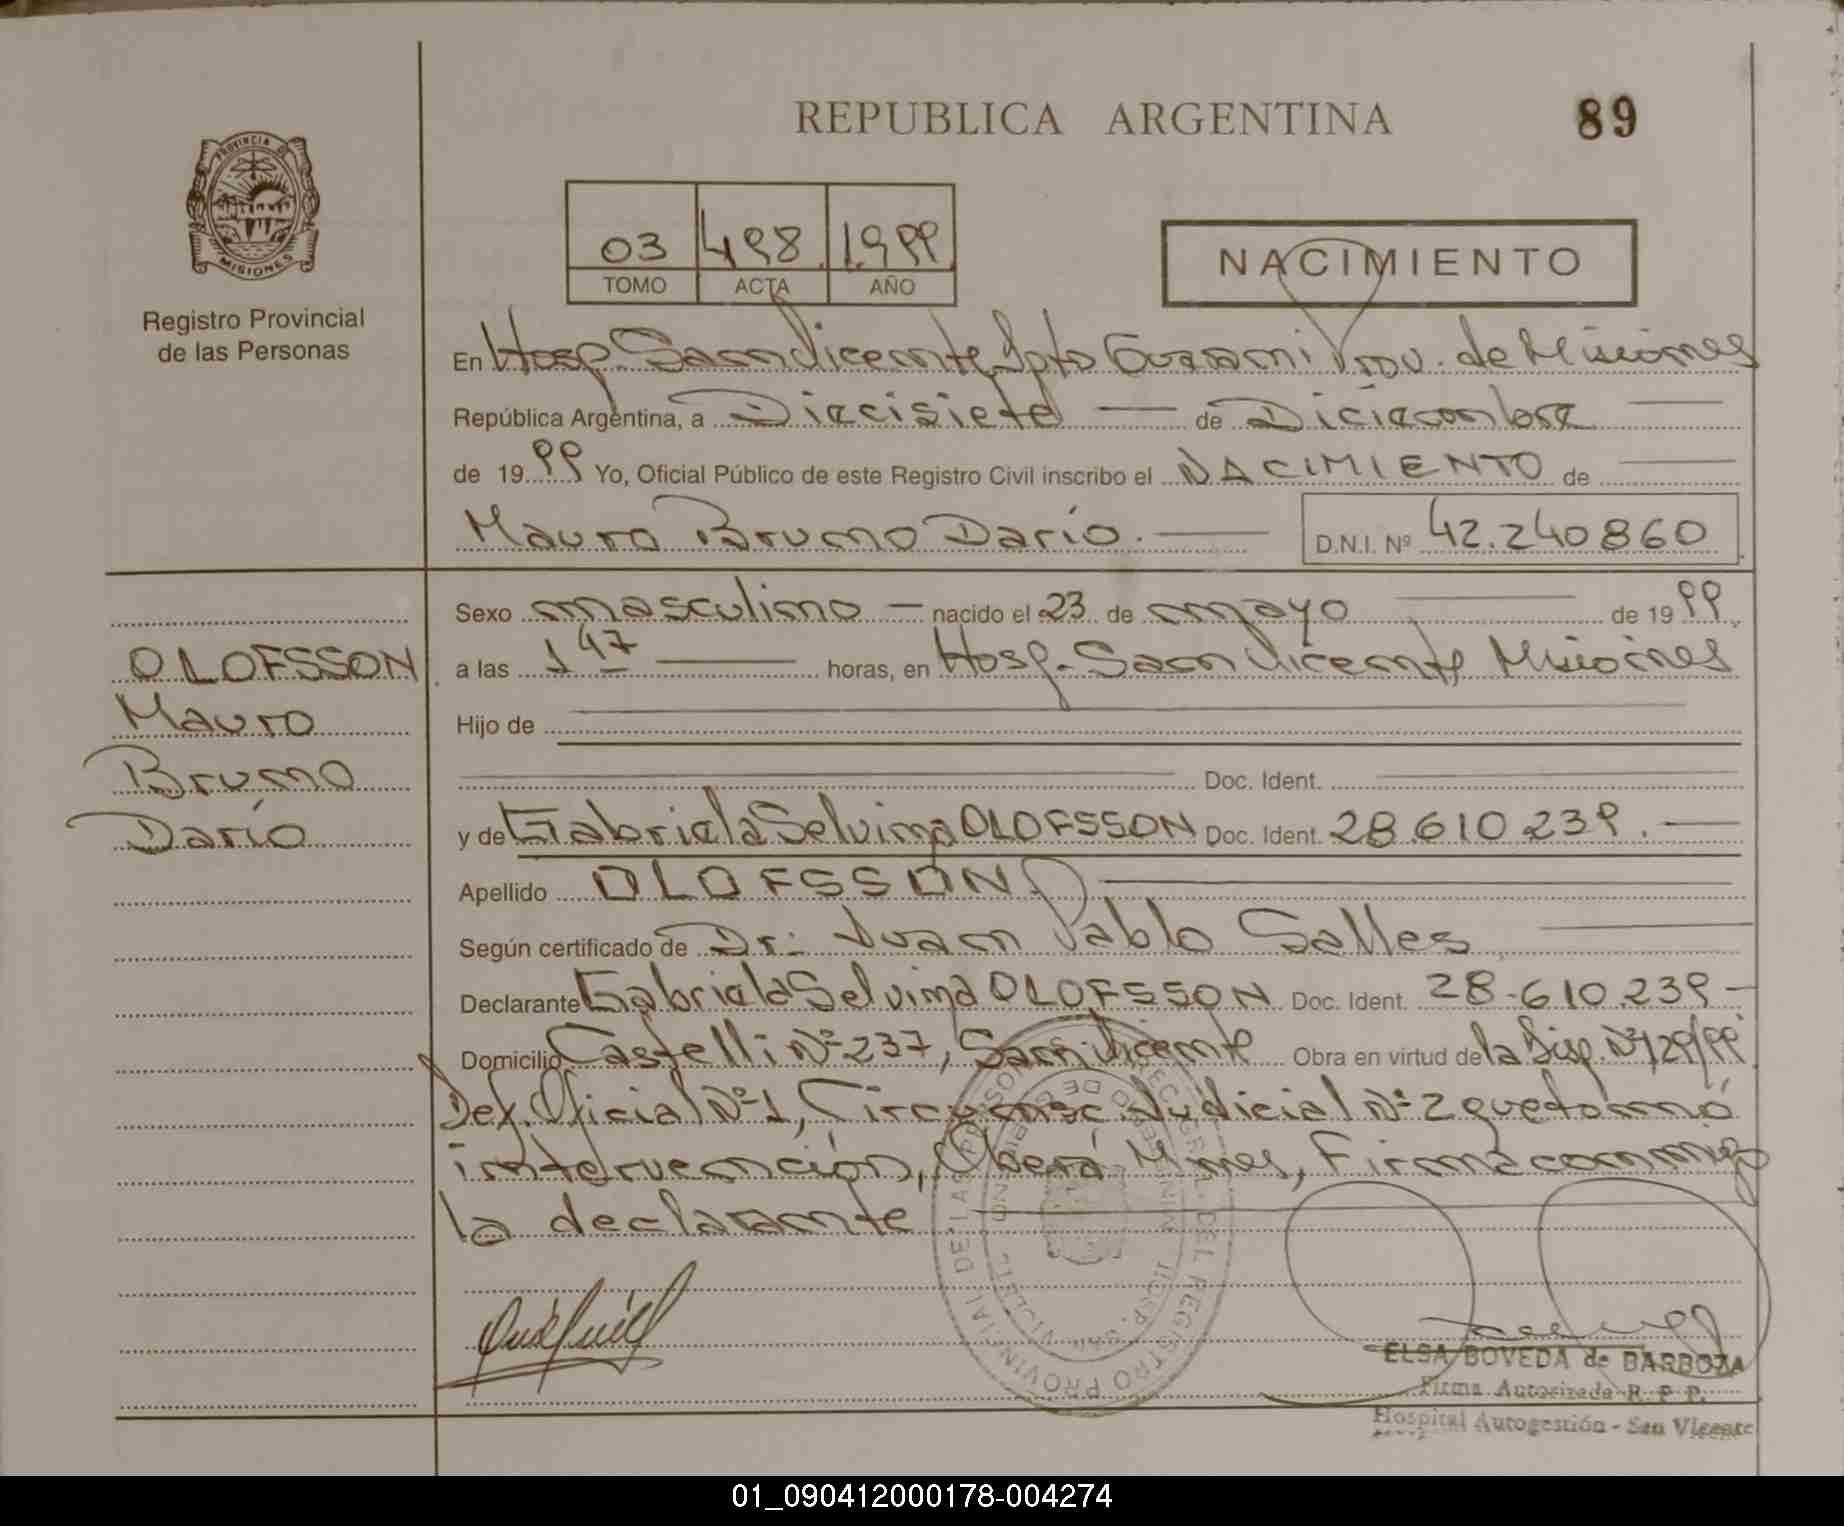 REPUBLICA ARGENTINA
89
PROVINCIA DE
MISIONES
Registro Provincial
de las Personas
03 498 1999
TOMO ACTA AÑO
NACIMIENTO
En Hosp. San Vicente, Dpto Guaraní Prov. de Misiones
República Argentina, a Diecisiete de Diciembre
de 1999 Yo, Oficial Público de este Registro Civil inscribo el NACIMIENTO de
Mauro Bruno Darío. D.N.I. Nº 42.240860
Sexo masculino nacido el 23 de mayo de 1999
a las 1 47 horas, en Hosp. San Vicente Misiones
Hijo de
Doc. Ident.
y de Gabriela Selvina OLOFSSON Doc. Ident. 28.610.239.
Apellido OLOFSSON
Según certificado de Dr: Juan Pablo Salles
Declarante Gabriela Selvina OLOFSSON Doc. Ident. 28.610.239
Domicilio Castelli Nº 237, San Vicente Obra en virtud de la Disp. Nº 129/99
Def. Oficial Nº 1, Circunsc. Judicial Nº 2 que tomó
intervención, Oberá Mnes, Firma conmigo
la declarante
OLOFSSON
Mauro
Bruno
Darío
ELSA BOVEDA de BARBOZA
Firma Autorizada R. P. P.
Hospital Autogestión - San Vicente
01_090412000178-004274